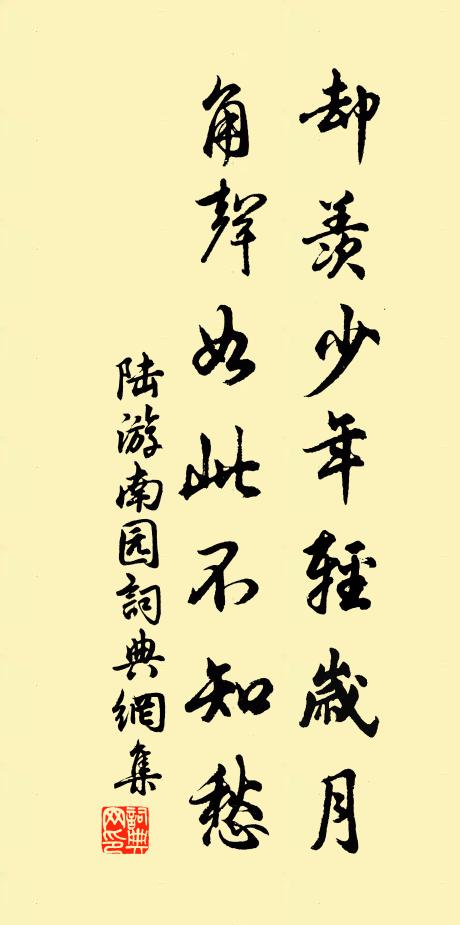 却羨少年輕歲月
角聲如此不知愁
陆游南园詞典網集
詞典网印